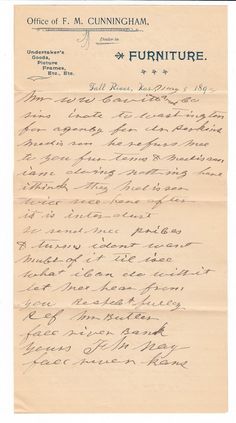 Office of F. M. CUNNINGHAM,
Dealer in
Undertaker's
Goods,
Picture
Frames,
Etc., Etc.
FURNITURE.
Fall River, Kas. 189
Mr W W & Co
sirs i rote to washington
for agency for dr Perkins
medison he refurs mee
to you fur terms & medison
i am doing nothing here
i think they medison
will here
it is
send mee prices
& turms i dont want
much of it til i see
what i can do with it
let mee hear from
you Respectfully
Ref Mr Butler
fall river Bank
yours F M Nay
fall river kans